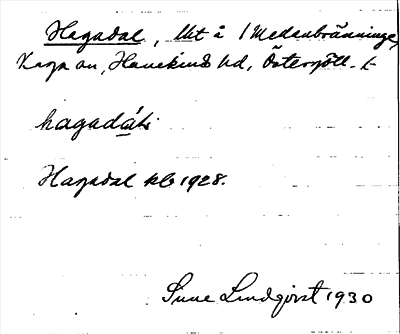 Hagadal, Ut å 1 Medenbränninge,
Kaga sn, Hanekinds hd, Östergötl.
hagadáli
Hagadal kb 1928.
Sune Lindqvist 1930